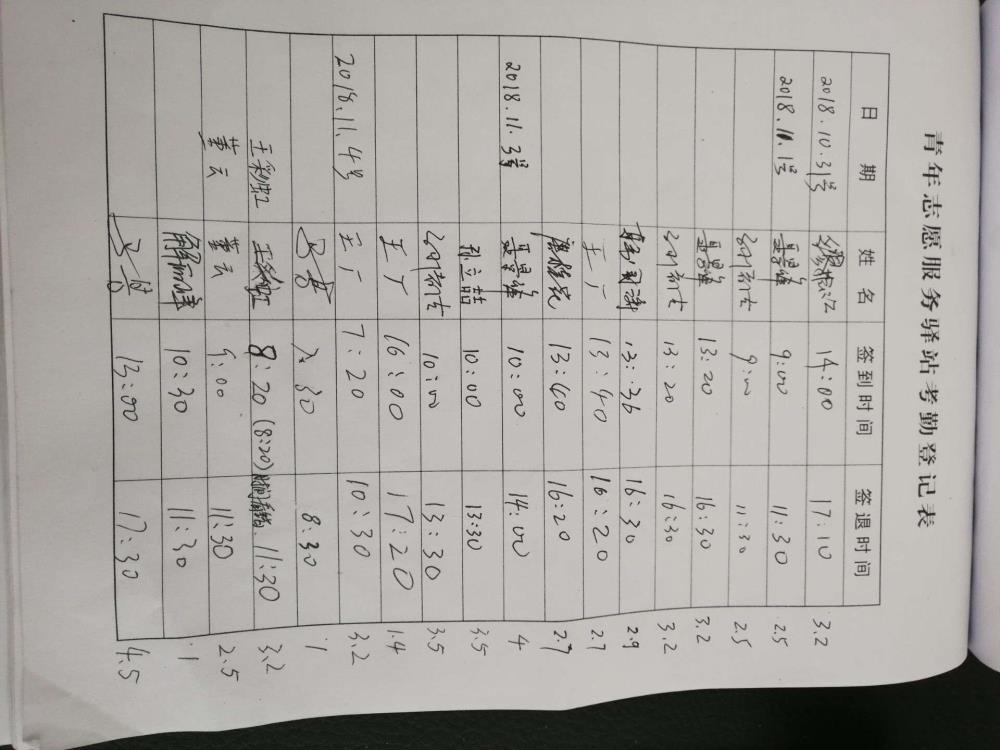 青年志愿服务驿站考勤登记表
日期 姓名 签到时间 签退时间
2018.10.31号 14:00 17:10 3.2
2018.11.1号 9:00 11:30 2.5
9:00 11:30 2.5
13:20 16:30 3.2
13:20 16:30 3.2
13:36 16:30 2.9
王丁 13:40 16:20 2.7
13:40 16:20 2.7
2018.11.3号 10:00 14:00 4
孙立喆 10:00 13:30 3.5
10:00 13:30 3.5
王丁 16:00 17:20 1.4
2018.11.4号 王丁 7:20 10:30 3.2
7:30 8:30 1
王彩虹 王彩虹 8:20 (8:20) 11:30 3.2
董云 董云 9:00 11:30 2.5
10:30 11:30 1
13:00 17:30 4.5